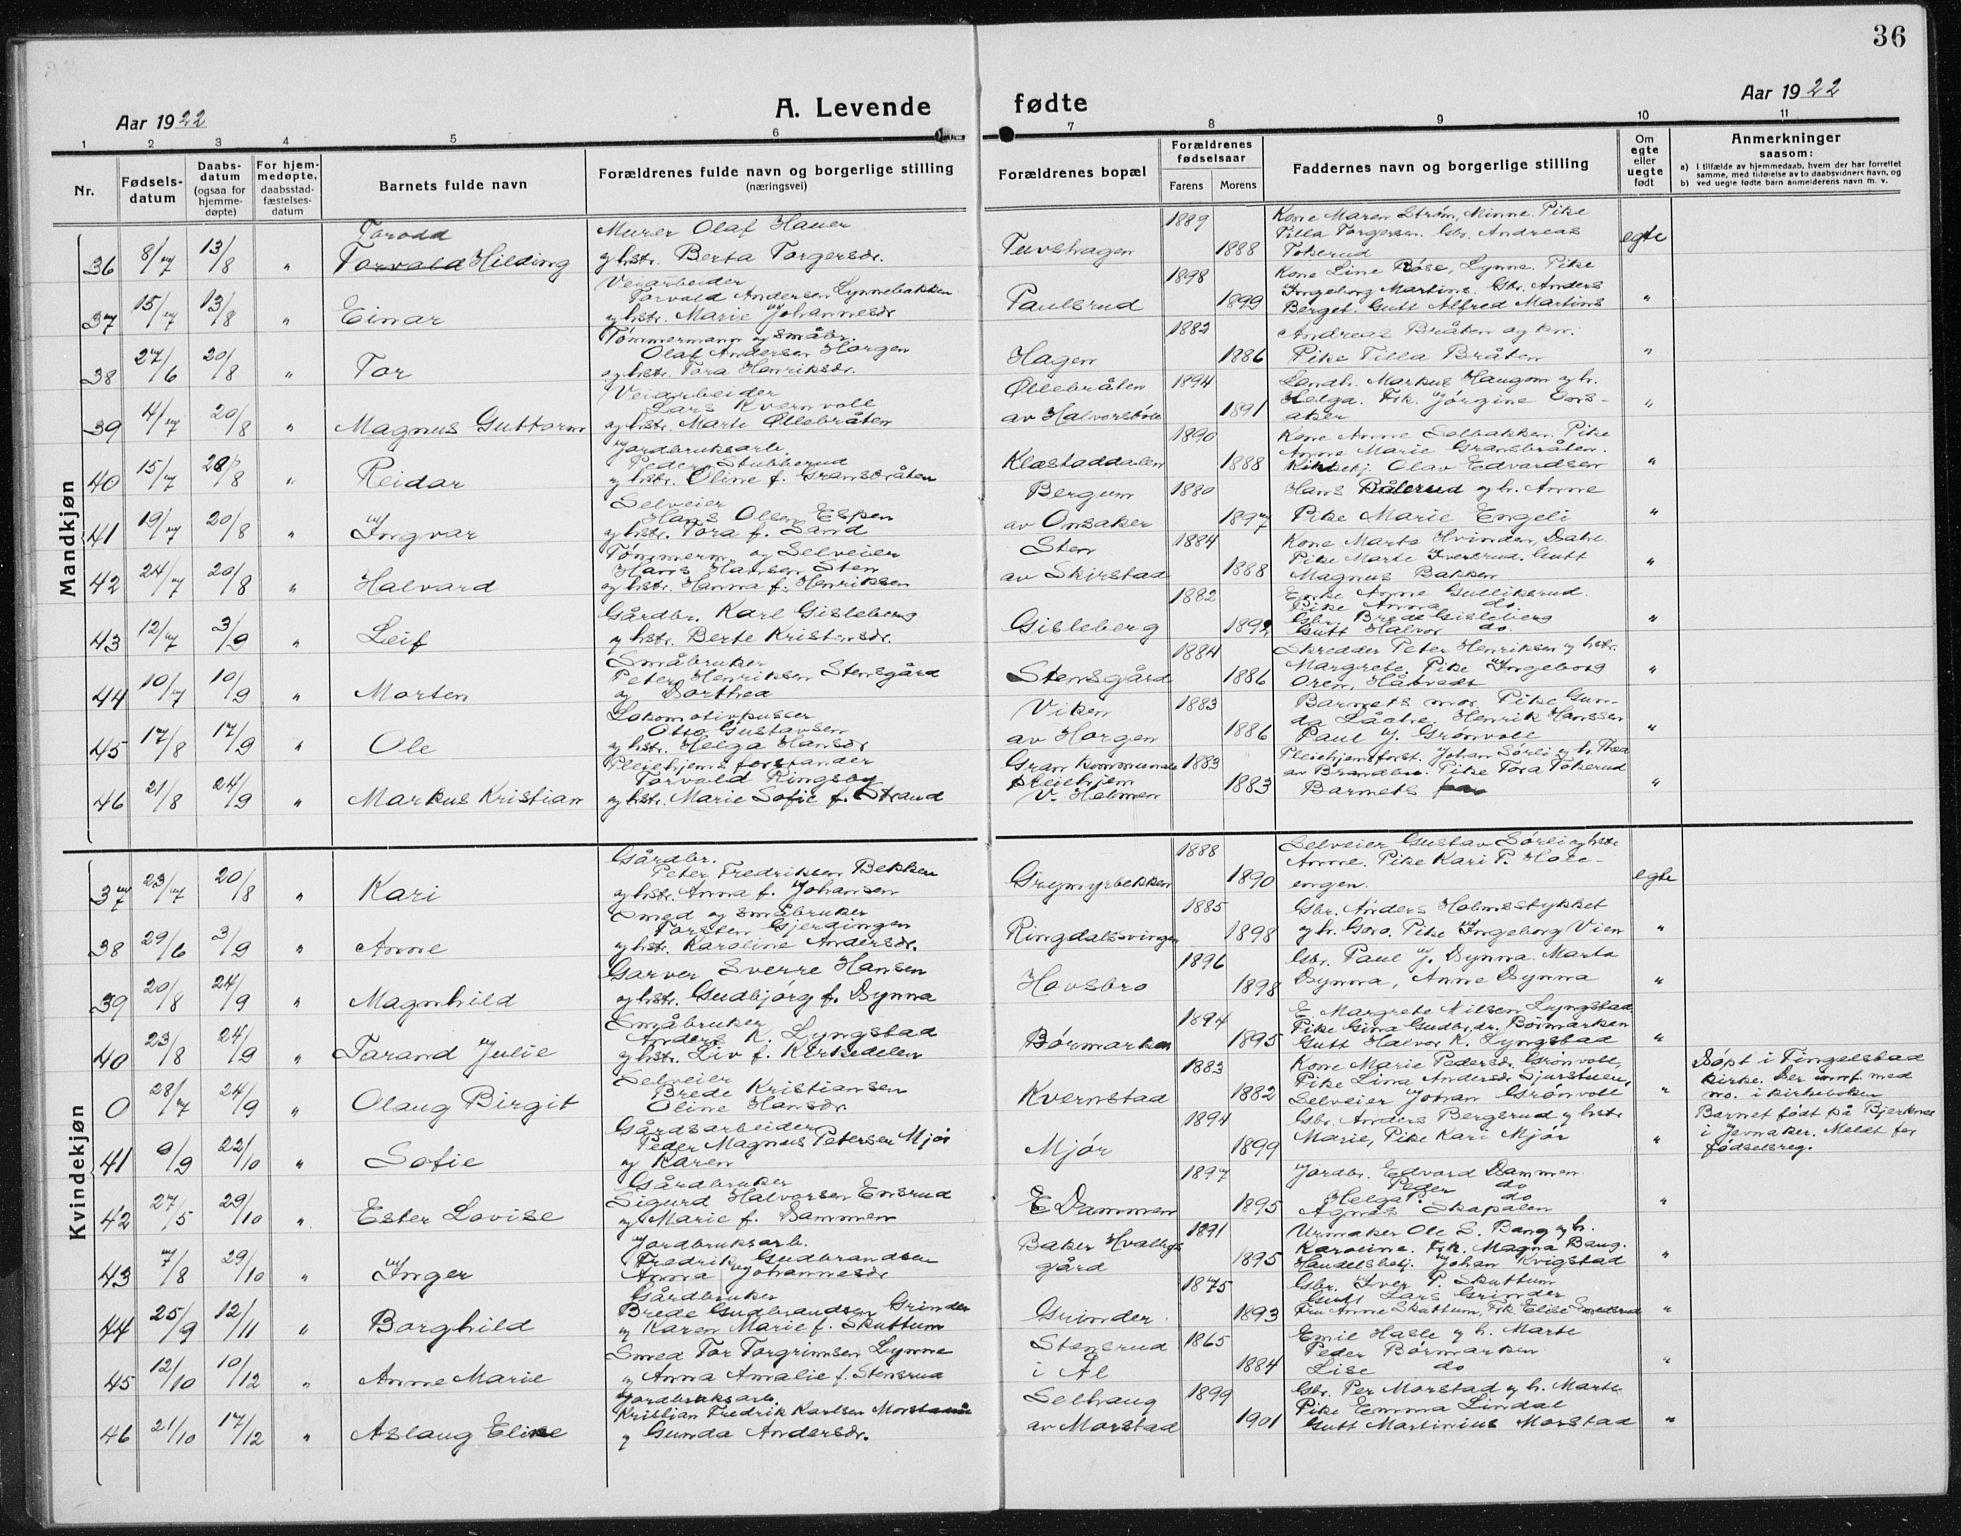 36
Aar 1922
A. Levende fødte
Aar 1922
1 2 3 4 5 6 7 8 9 10 11
Nr.
Fødsels-
datum
Daabs-
datum
(ogsaa for
hjemme-
døpte)
For hjem-
medøpte,
daabsstad-
fæstelses-
datum
Barnets fulde navn
Forældrenes fulde navn og borgerlige stilling
(næringsvei)
Forældrenes bopæl
Forældrenes
fødselsaar
Farens Morens
Faddernes navn og borgerlige stilling
Om
egte
eller
uegte
født
Anmerkninger
saasom:
a) i tilfælde av hjemmedaab, hvem der har forrettet
samme, med tilføielse av to daabsvidners navn, og
b) ved uegte fødte barn anmelderens navn m. v.
Mandkjøn
36 8/7 13/8 " Torodd
Torvald Hilding
Murer Olaf Hauer
og hstr. Berta Torgersdr.
Tuvshagen 1889 1888
Kone Maren Strøm, Minne. Pike
Tilla Torgersen. Gbr. Andreas
Tokerud
egte
37 15/7 13/8 " Einar
Veiarbeider
Torvald Andersen Lynnebakken
og hstr. Marie Johannesdr
Paulsrud 1898 1899
Kone Line Røse, Lynne. Pike
Ingeborg Martins. Gbr. Anders
Berget. Gutt Alfred Martins
"
38 27/6 20/8 " Tor
Tømmermann og småbr.
Olaf Andersen Horgen
og hstr. Tora Henriksdr.
Hagen 1882 1886
Andreas Bråten og kn.
Pike Tilla Bråten
"
39 4/7 20/8 " Magnus Guttorm
Veiarbeider
Lars Kvernvoll
og hstr. Marte Øllebråten
Øllebråten
av Halvorsbøle
1894 1891
Landh. Markus Haugom og h.
Helga. Frk. Jørgine Ons-
aker
"
40 15/7 20/8 " Reidar
Jordbruksarb.
Peder Stubberud
og hstr. Oline f. Gransbråten
Klæstaddalen 1890 1888
Kone Anne Solbakken. Pike
Anne Marie Gransbråten.
Olav Edvardsen
"
41 19/7 20/8 " Ingvar
Selveier
Hans Olsen Espen
og hstr. Tora f. Sand
Bergum
av Onsaker
1880 1897
Hans Bålerud og h. Anne
Pike Marie Engeli
"
42 24/7 20/8 " Halvard
Tømmerm. og Selveier
Hans Hansen Sten
og hstr. Hanna f. Henriksen
Sten
av Skirstad
1884 1888
Kone Marta Hvinden, Dahl.
Pike Marte Iversrud. Gutt
Magnus Bakken
"
43 12/7 3/9 " Leif
Gårdbr. Karl Gisleberg
og hstr. Berte Kristensdr.
Gisleberg 1882 1892
Enke Anne Gulliksrud.
Pike Anna do
Gbr. Brede Gisleberg
Gutt Halvor do
"
44 10/7 10/9 " Morten
Småbruker
Peter Henriksen Stensgård
og Dorthea
Stensgård 1884 1886
Skredder Peter Henriksen og hstr.
Margrete, Pike Ingeborg
Oren, Håtvedt
"
45 17/8 17/9 " Ole
Lokomotivpusser
Otto Gustavsen
og hstr. Helga Hansdr
Viken
av Horgen
1883 1886
Barnets mor. Pike Gun-
da Låche. Henrik Hanssen
Paul J. Grønvoll
"
46 21/8 24/9 " Markus Kristian
Pleiehjems forstander
Torvald Ringsby
og hstr. Marie Sofie f. Strand
Gran kommunale
pleiehjem
V. Helmen
1883 1883
Pleiehjemsforst. Johan Sørli og h. Thea
av Brandbu. Pike Tora Tokerud
Barnets
"
Kvindekjøn
37 23/7 20/8 " Kari
Gårdbr.
Peter Fredriksen Bekken
og hstr. Anna f. Johansen
Grymyrbekken 1888 1890
Selveier Gustav Sørli og hstr
Anne. Pike Kari P. Hole-
engen.
egte
38 29/6 3/9 " Anne
Smed og småbruker
Torsten Gjerdingen
og hstr. Karoline Andersdr.
Ringdalssvingen 1885 1898
Gbr. Anders Holmsstykket
og h. Goro. Pike Ingeborg Vien
"
39 20/8 24/9 " Magnhild
Garver Sverre Hansen
og hstr. Gudbjørg f. Dynna
Hovsbro 1896 1898
Gbr. Paul J. Dynna. Marta
Dynna, Anne Dynna
"
40 23/8 24/9 " Tarand Julie
Småbruker
Anders K. Lyngstad
og hstr. Liv f. Kirkedelen
Børmarken 1894 1895
E. Margrete Nilsen Lyngstad
Pike Gina Gudbr.dr. Børmarken
Gutt Halvor K. Lyngstad
"
0 28/7 24/9 " Olaug Birgit
Selveier
Brede Kristiansen
Oline Hansdr.
Kvernstad 1883 1882
Kone Marie Pedersdr. Grønvoll,
Pike Lina Andersdr. Sjurstuen,
Selveier Johan Grønvoll
"
Døpt i Tingelstad
kirke. Der innf. med
no. i kirkeboken
41 9/9 22/10 " Sofie
Gårdsarbeider
Peder Magnus Petersen Mjør
og Karen
Mjør 1894 1899
Gbr. Anders Bergsrud og hstr
Marie, Pike Kari Mjør
"
Barnet født på Bjerknes
i Jevnaker. Meldt for
fødselsreg.
42 27/5 29/10 " Ester Lovise
Gårdbruker
Sigurd Halvorsen Ensrud
og Marie f. Dammen
E Dammen 1897 1895
Jordbr. Edvard Dammen
Peder do
Helga P. do
Agnes Skapalen
"
43 7/8 29/10 " Inger
Jordbruksarb.
Fredrik Gudbrandsen
Anna Johannesdr
Baker Hvalbys
gård
1891 1895
Urmaker Ole S. Bang og h.
Karoline. Frk. Magna Bang.
Handelsbetj. Johan Kvigstad
"
44 25/9 12/11 " Borghild
Gårdbruker
Brede Gudbrandsen Grinder
og Karen Marie f. Skattum
Grinder 1875 1893
Gbr. Iver P. Skattum
Gutt Lars Grinder
Fru Anne Skattum, Frk Elise
"
45 12/10 10/12 " Anne Marie
Smed Tor Torgrimsen Lynne
og Anna Amalie f. Stensrud
Stensrud
i Ål
1865 1884
Emil Hasle og h. Marte
Peder Børmarken
Lise do
"
46 21/10 17/12 " Aslaug Elise
Jordbruksarb.
Kristian Fredrik Karlsen Morstad
og Gunda Andersdr.
Selhaug
av Morstad
1899 1901
Gbr. Per Morstad og h. Marte
Pike Emma Lindal
Gutt Martinius Morstad
"